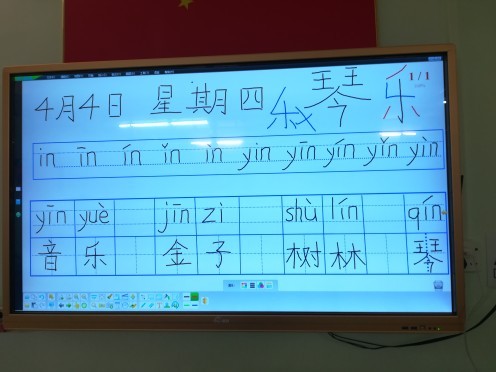 4月4日 星期四 乐 琴 乐
1/1
in īn ín ǐn ìn yin yīn yín yǐn yìn
yīn yuè jīn zi shù lín qín
音乐 金子 树林 琴